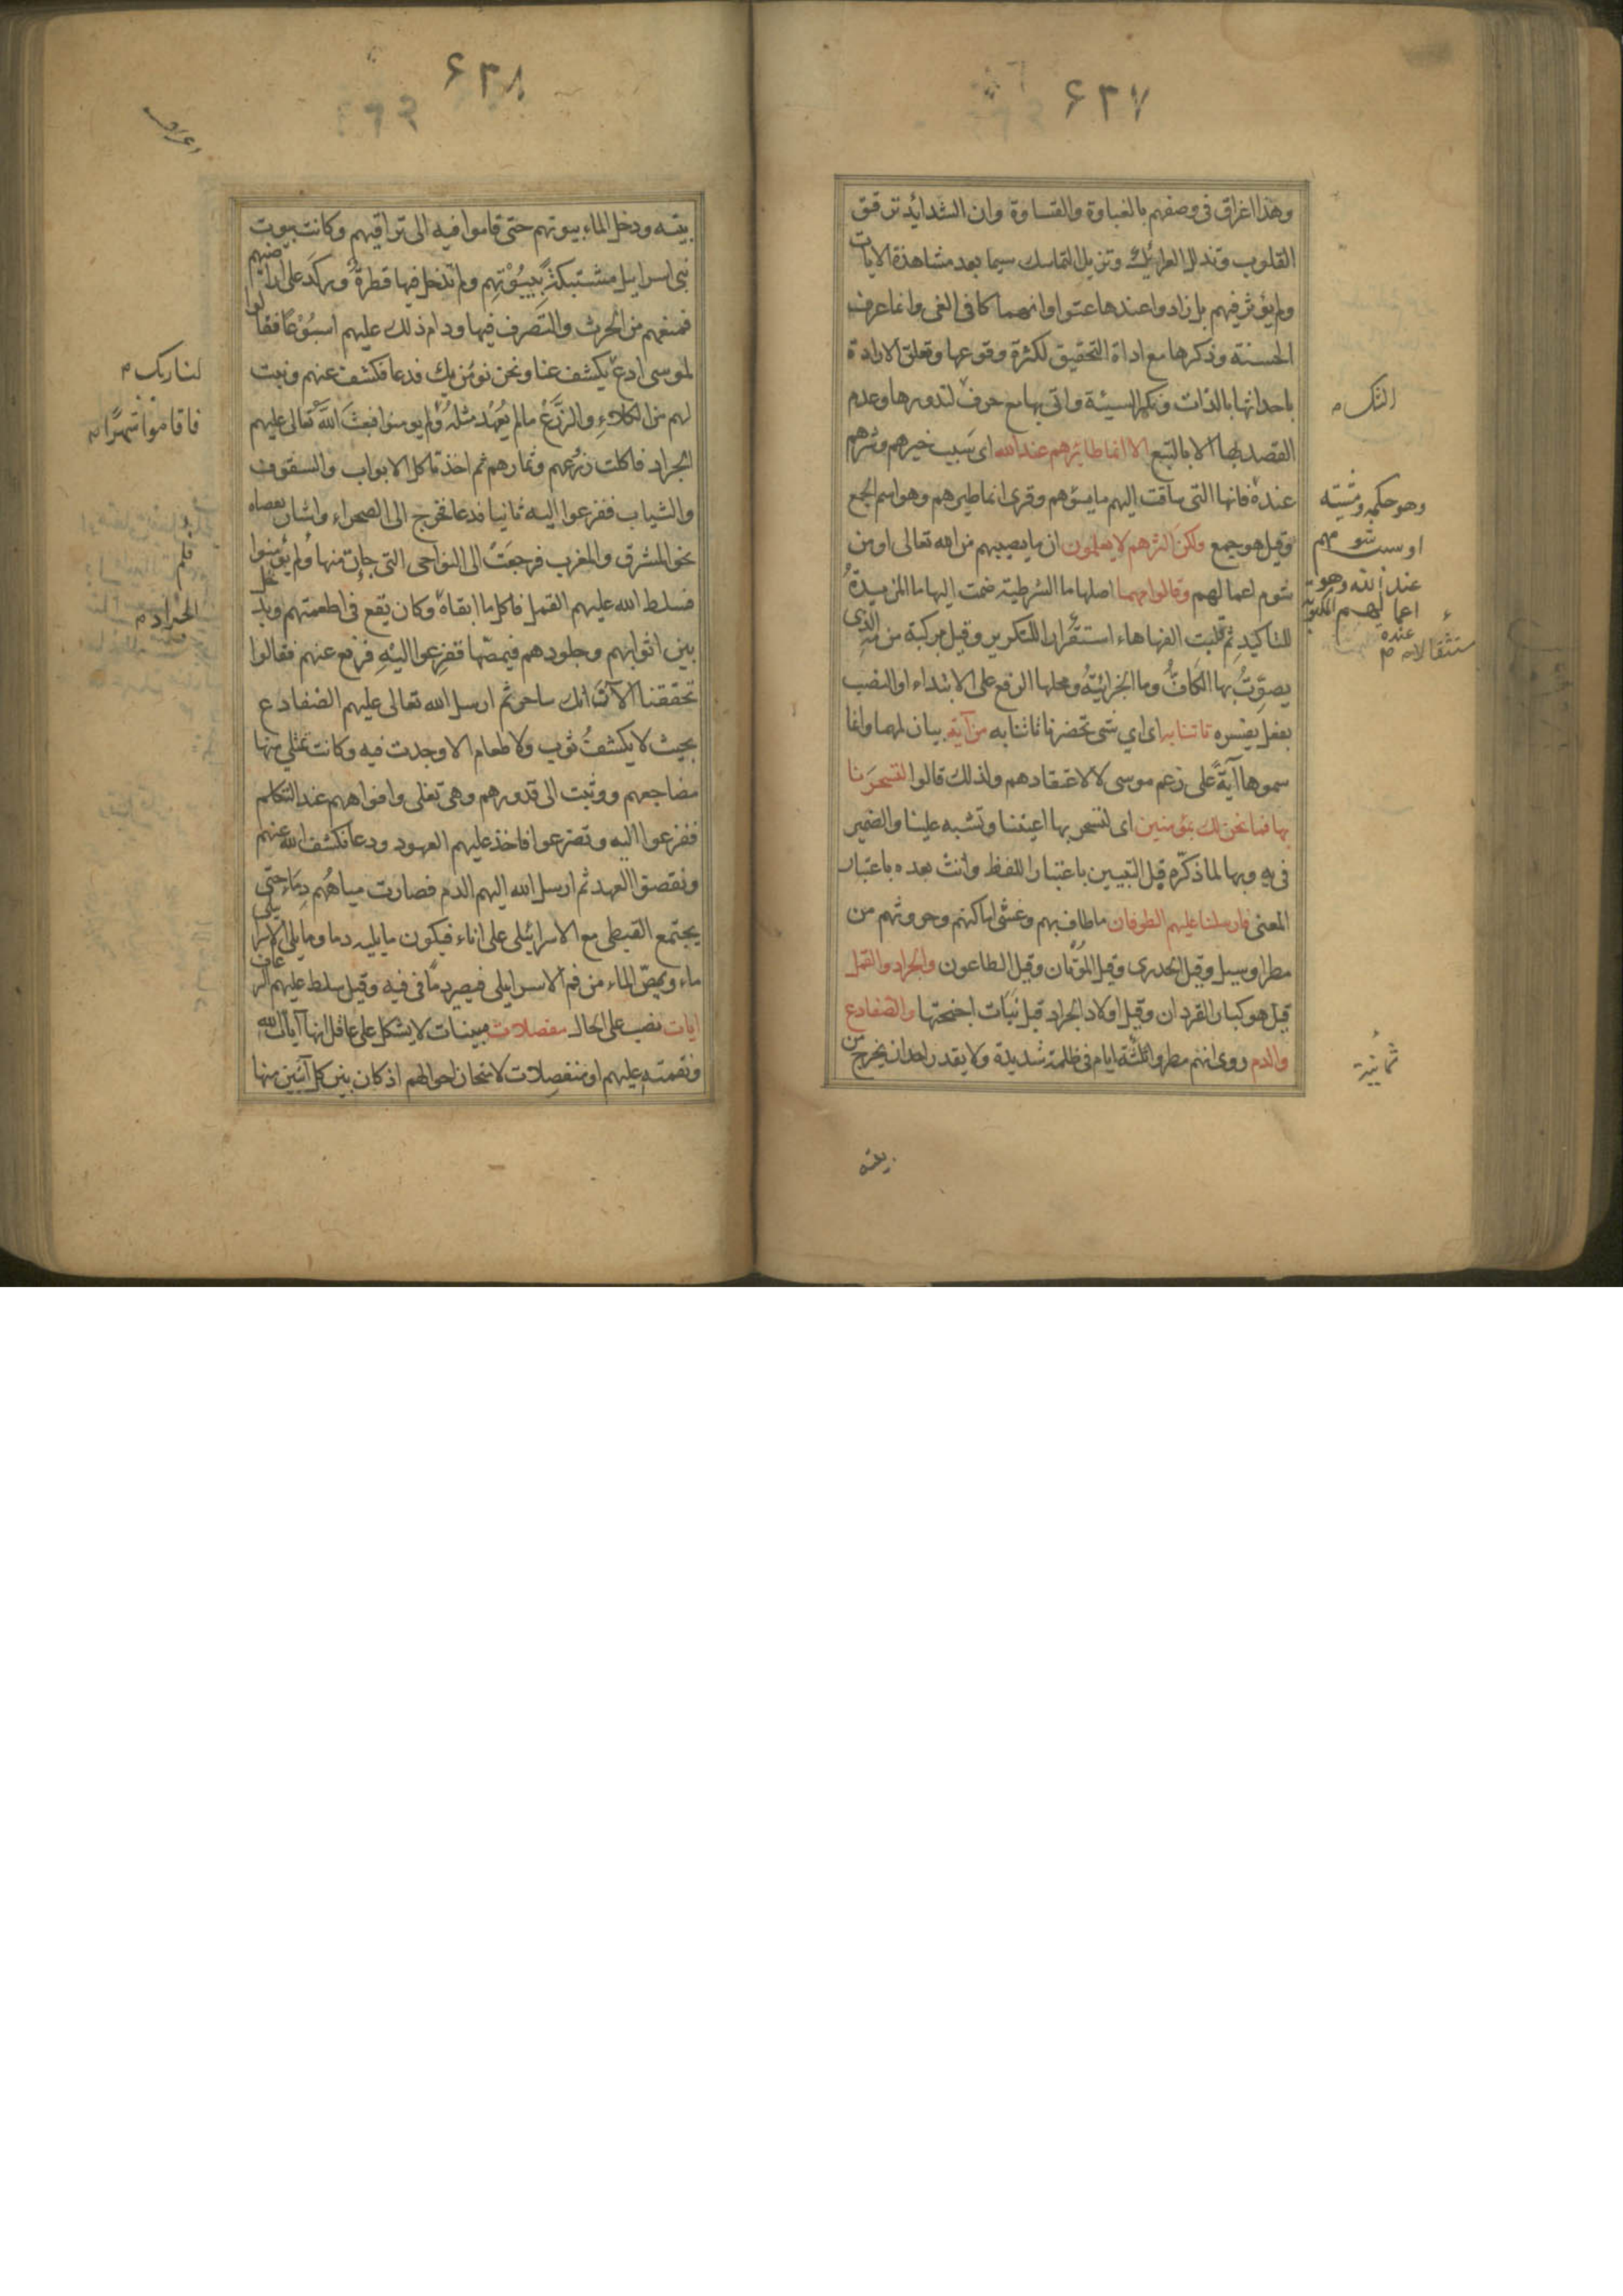 ۶۳۷
وهذا اغراق فى وصفهم بالغباوة والقساوة وان الشدايد ترقق
القلوب وتذلل العرائك وتزيل التماسك سيما بعد مشاهدة الايات
ولم يؤثر فيهم بل زادوا عندها عتوا وانهماكا فى الغى وانما عرف
الحسنة وذكرها مع اداة التحقيق لكثرة وقوعها وتعلق الارادة
باحداثها بالذات ونكر السيئة واتى بها مع حرف لندورها وعدم
الشك م
القصد بها الا بالتبع الا انما طائرهم عند الله اى سبب خيرهم وشرهم
عنده فانها التى ساقت اليهم ما يسؤهم وقرى انما طيرهم وهو اسم الجمع
وهو حكمه ومشيته
وقيل هو جمع ولكن اكثرهم لا يعلمون ان ما يصيبهم من الله تعالى او من
او سبب شومهم
عند الله وهو
اعمالهم المكتوبة
عنده
شوم اعمالهم وقالوا مهما اصلها ما الشرطية ضمت اليها ما المزيدة
للتاكيد ثم قلبت الفها هاء استقرارا للتكرير وقيل مركبة من مه الذى
استثقالا م
يصوت بها الكاف وما الجزائية ومحلها الرفع على الابتداء او النصب
بفعل يفسره تاتنا به اى اي شى تحضرنا تاتنا به من آية بيان لمهما وانما
سموها آية على زعم موسى لا لاعتقادهم ولذلك قالوا لتسحرنا
بها فما نحن لك بمؤمنين اى لتسحر بها اعيننا وتشبه علينا والضمير
فى به وبها لما ذكره قبل التبيين باعتبار اللفظ وانث بعده باعتبار
المعنى فارسلنا عليهم الطوفان ما طاف بهم وغشى اماكنهم وحروثهم من
مطر او سيل وقيل الجدرى وقيل الموتان وقيل الطاعون والجراد والقمل
قيل هو كبار القردان وقيل اولاد الجراد قبل نبات اجنحتها والضفادع
والدم روى انهم مطروا ثلثة ايام فى ظلمة شديدة ولا يقدر احد ان يخرج من
ثمانية
بيته
۶۳۸
بيته ودخل الماء بيوتهم حتى قاموا فيه الى تراقيهم وكانت بيوت
بنى اسرايل مشتبكة ببيوتهم ولم تدخل فيها قطرة وركد على اراضيهم
فمنعهم من الحرث والتصرف فيها ودام ذلك عليهم اسبوعا فقالوا
لموسى ادع يكشف عنا ونحن نؤمن بك فدعا فكشف عنهم ونبت
لنا ربك م
لهم من الكلاء والزرع ما لم يعهد مثله ولم يومنوا فبعث الله تعالى عليهم
فاقاموا شهرا م
الجراد فاكلت زرعهم وثمارهم ثم اخذ تاكل الابواب والسقوف
والثياب ففزعوا اليه ثانيا فدعا فخرج الى الصحراء واشار بعصاه
نحو المشرق والمغرب فرجعت الى النواحى التى جات منها ولم يؤمنوا
فلم
فسلط الله عليهم القمل فاكل ما ابقاه وكان يقع فى اطعمتهم ويدخل
الجراد م
بين اثوابهم وجلودهم فيمصها ففزعوا اليه فرفع عنهم فقالوا
تحققنا الآن انك ساحر ثم ارسل الله تعالى عليهم الضفادع
بحيث لا يكشف ثوب ولا طعام الا وجدت فيه وكانت تمتلى منها
مضاجعهم ووثبت الى قدورهم وهى تغلى وافواههم عند التكلم
ففزعوا اليه وتضرعوا فاخذ عليهم العهود ودعا فكشف الله عنهم
ونقضوا العهد ثم ارسل الله اليهم الدم فصارت مياههم دماء حتى
يجتمع القبطى مع الاسرائيلى على اناء فيكون ما يليه دما وما يلى الاسرايلى
ماء ويمص الماء من فم الاسرايلى فيصير دما فى فيه وقيل سلط عليهم الرعاف
ايات نصب على الحال مفصلات مبينات لا يشكل على عاقل انها آيات الله
ونقمته عليهم او منفصلات لامتحان احوالهم اذ كان بين كل آيتين منها